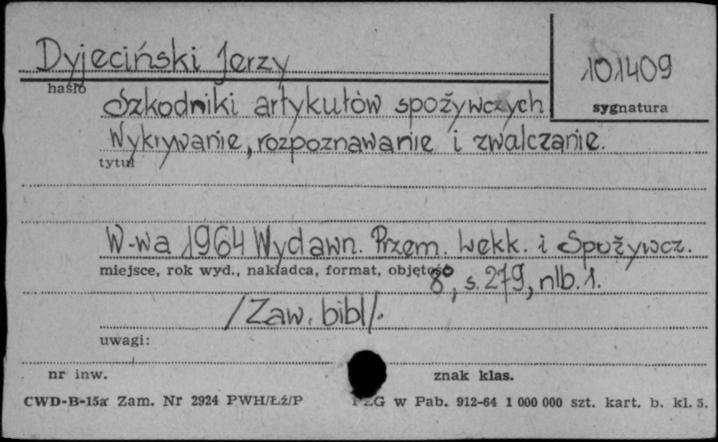 Dyjeciński Jerzy
101409
hasło
sygnatura
Szkodniki artykułów spożywczych
Wykrywanie, rozpoznawanie i zwalczanie.
tytuł
W-wa 1964 Wydawn. Przem. Lekk. i Spożywcz.
miejsce, rok wyd., nakładca, format, objętość
8°, s. 279, nlb. 1.
/Zaw. bibl/.
uwagi:
nr inw.
znak klas.
CWD-B-15a Zam. Nr 2924 PWH/Łź/P
PZG w Pab. 912-64 1 000 000 szt. kart. b. kl. 5.